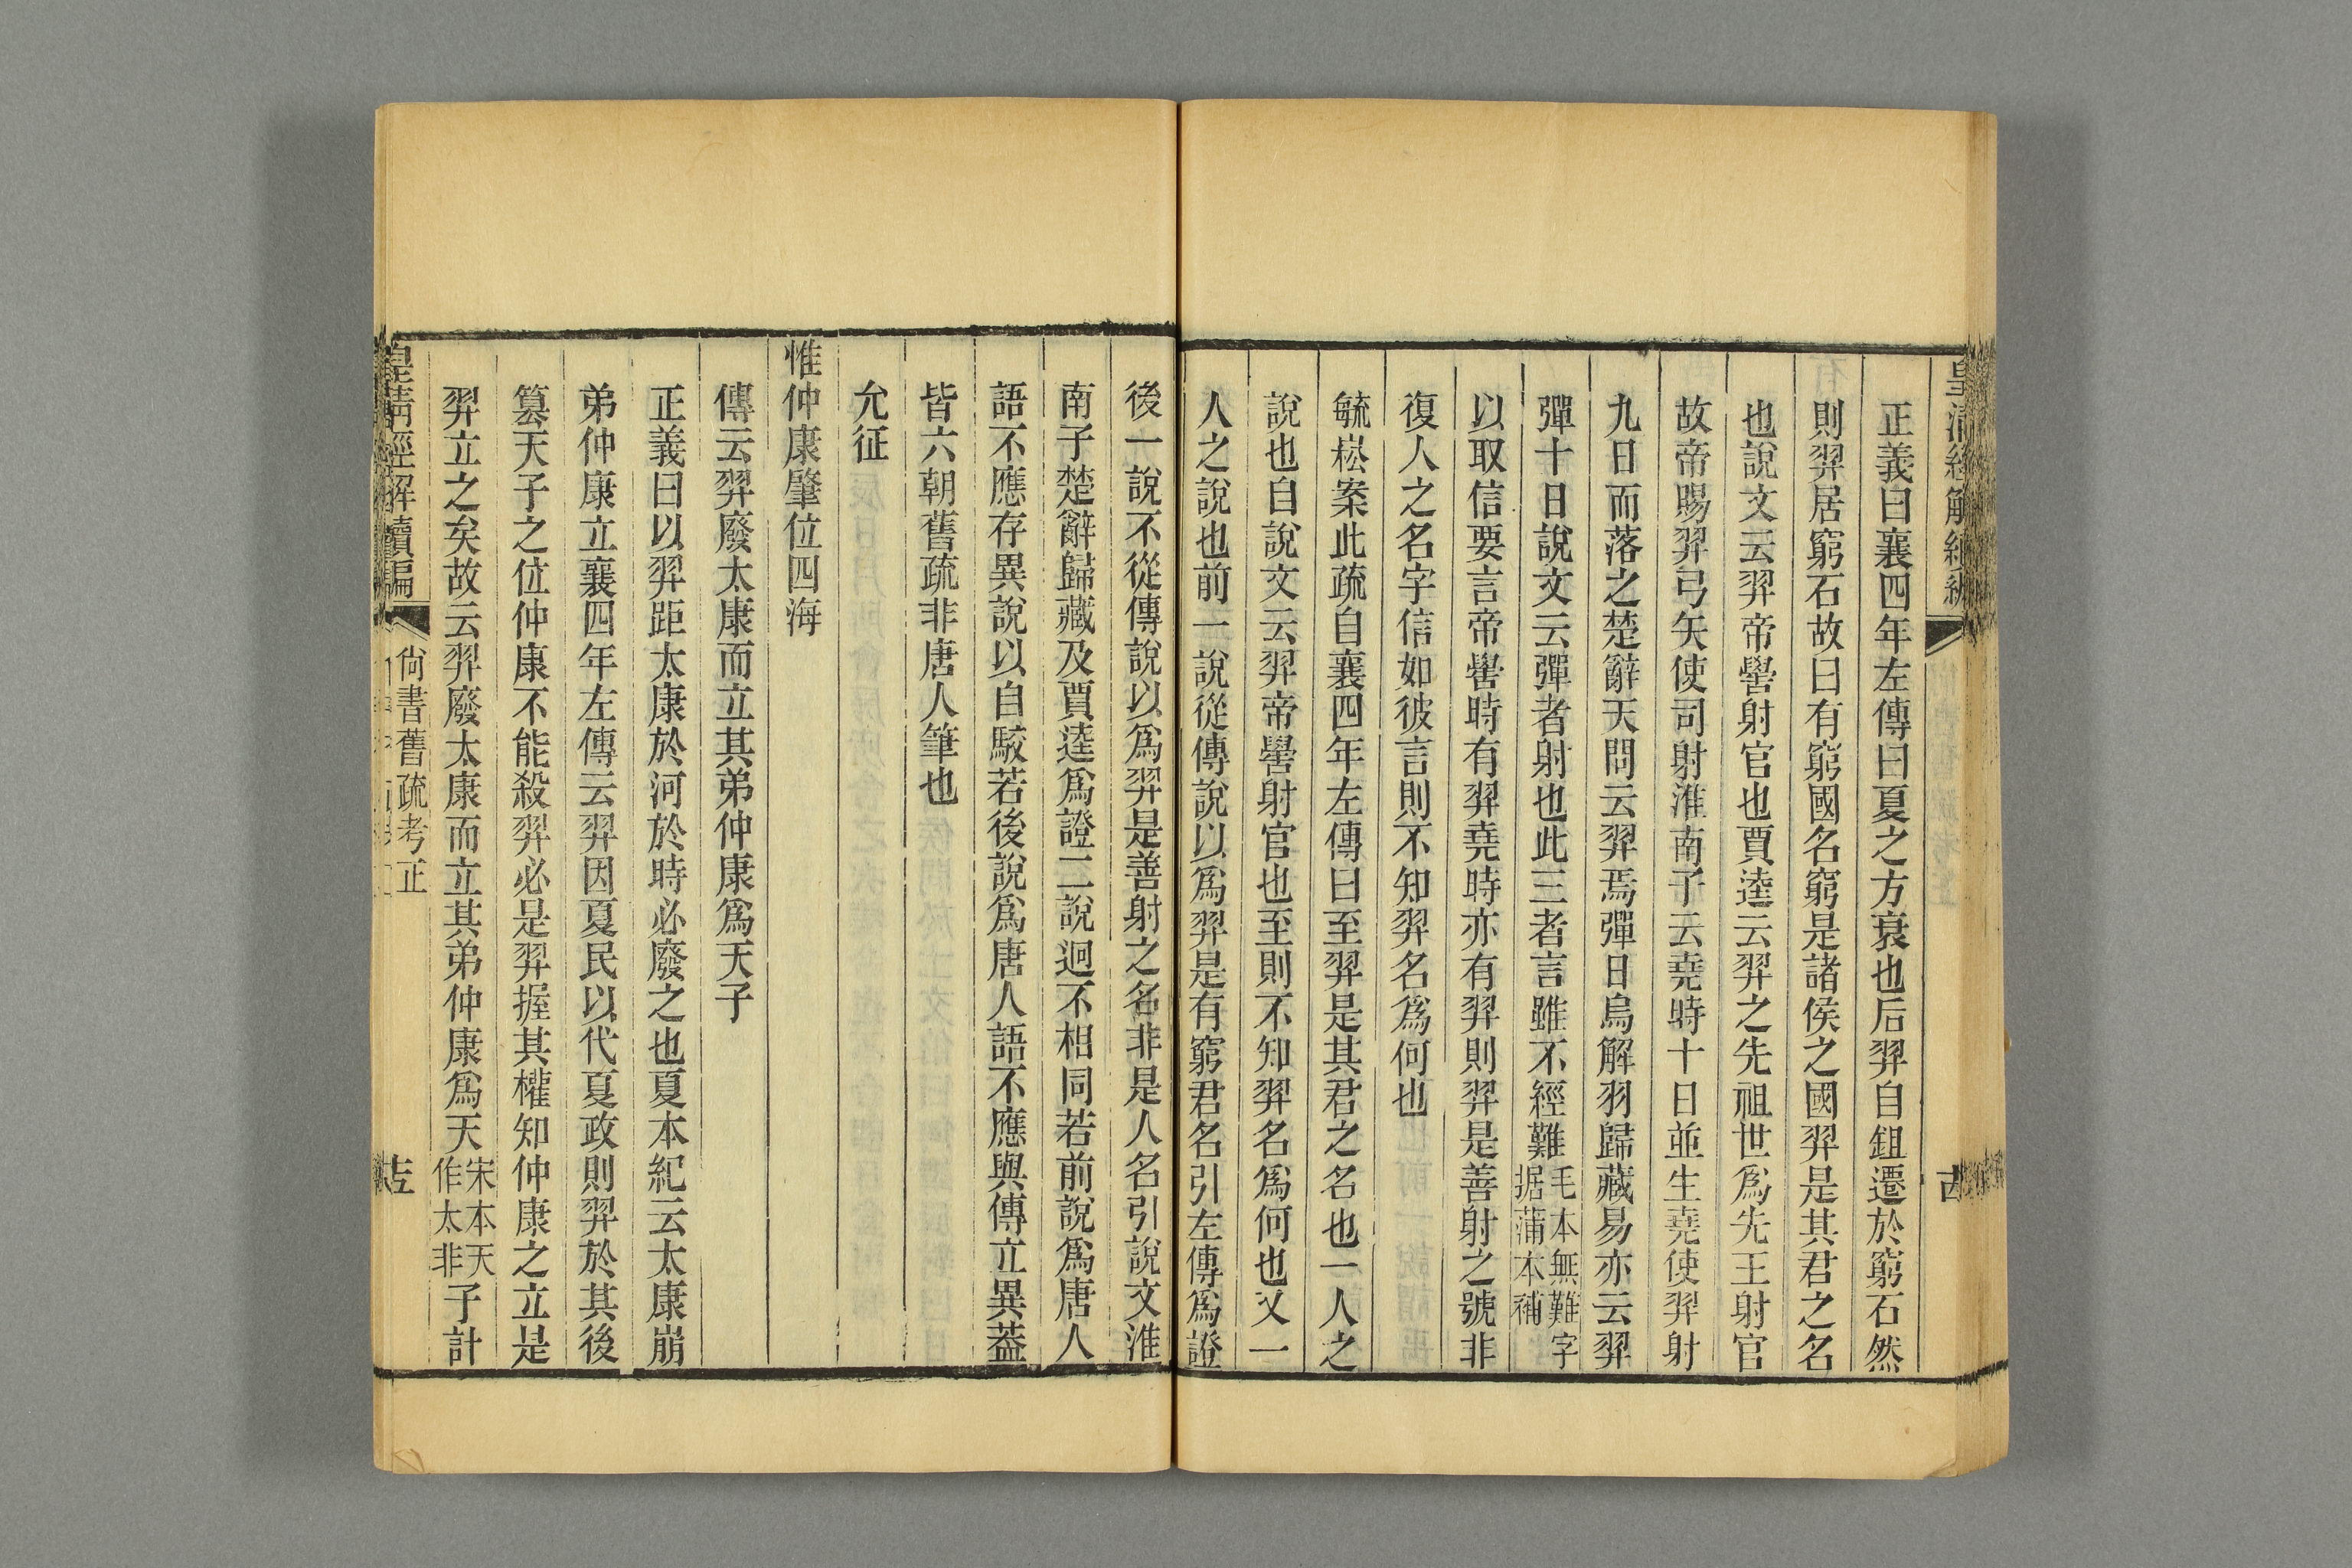 正義曰襄四年左傳曰夏之方衰也后羿自鉏遷於窮石然
則羿居窮石故曰有窮國名窮是諸侯之國羿是其君之名
也說文云羿帝嚳射官也賈逵云羿之先祖世爲先王射官
故帝賜羿弓矢使司射淮南子云堯時十日並生堯使羿射
九日而落之楚辭天問云羿焉彈日烏解羽歸藏易亦云羿
彈十日說文云彈者射也此三者言雖不經難毛本無難字据蒲本補
以取信要言帝嚳時有羿堯時亦有羿則羿是善射之號非
復人之名字信如彼言則不知羿名爲何也
毓崧案此疏自襄四年左傳曰至羿是其君之名也一人之
說也自說文云羿帝嚳射官也至則不知羿名爲何也又一
人之說也前一說從傳說以爲羿是有窮君名引左傳爲證
後一說不從傳說以爲羿是善射之名非是人名引說文淮
南子楚辭歸藏及賈逵爲證二說迥不相同若前說爲唐人
語不應存異說以自駮若後說爲唐人語不應與傳立異葢
皆六朝舊疏非唐人筆也
允征
惟仲康肈位四海
傳云羿廢太康而立其弟仲康爲天子
正義曰以羿距太康於河於時必廢之也夏本紀云太康崩
弟仲康立襄四年左傳云羿因夏民以代夏政則羿於其後
簒天子之位仲康不能殺羿必是羿握其權知仲康之立是
羿立之矣故云羿廢太康而立其弟仲康爲天宋本天作太非子計
皇清經解續編
尚書舊疏考正